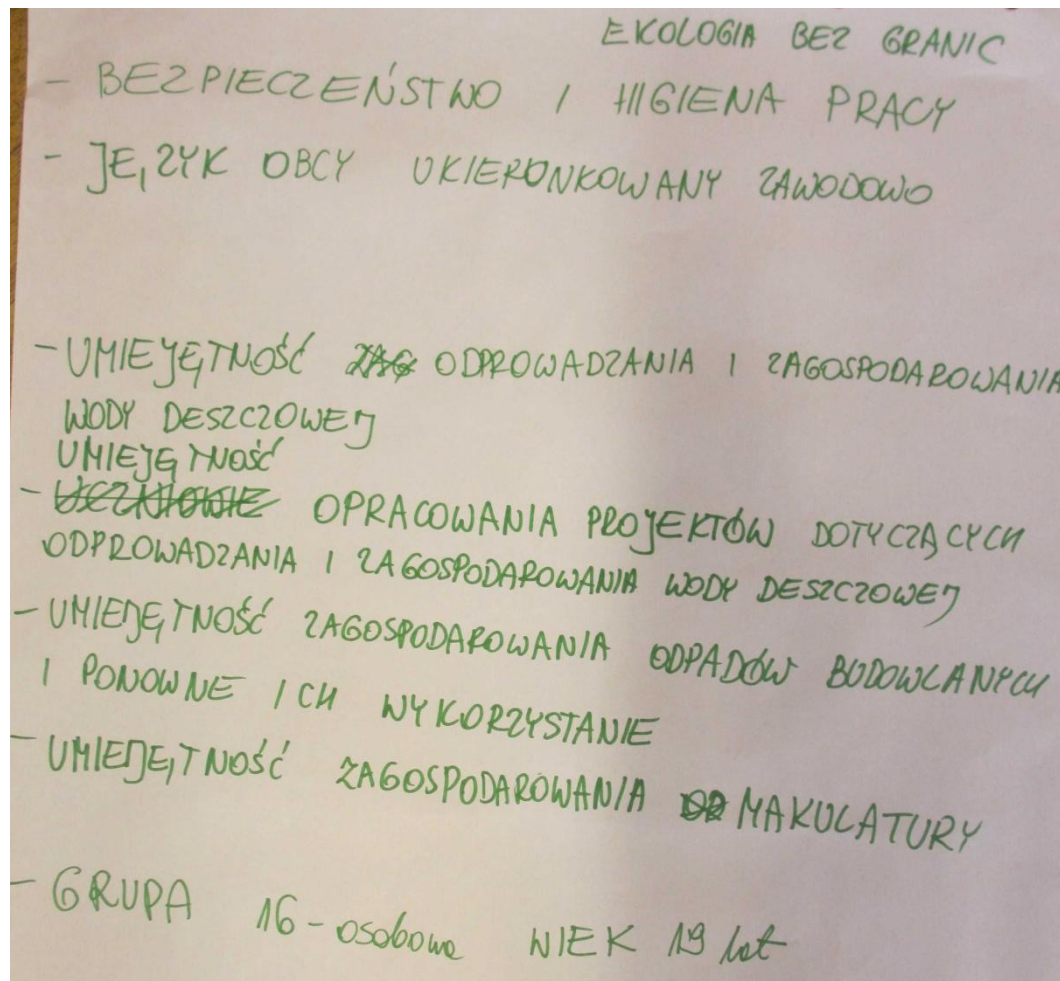 EKOLOGIA BEZ GRANIC
- BEZPIECZEŃSTWO I HIGIENA PRACY
- JĘZYK OBCY UKIERONKOWANY ZAWODOWO
- UMIEJĘTNOŚĆ ODPROWADZANIA I ZAGOSPODAROWANIA
WODY DESZCZOWEJ
UMIEJĘTNOŚĆ
- UCZNIOWIE OPRACOWANIA PROJEKTÓW DOTYCZĄCYCH
ODPROWADZANIA I ZAGOSPODAROWANIA WODY DESZCZOWEJ
- UMIEJĘTNOŚĆ ZAGOSPODAROWANIA ODPADÓW BUDOWLANYCH
I PONOWNE ICH WYKORZYSTANIE
- UMIEJĘTNOŚĆ ZAGOSPODAROWANIA MAKULATURY
- GRUPA 16-osobowa WIEK 19 lat